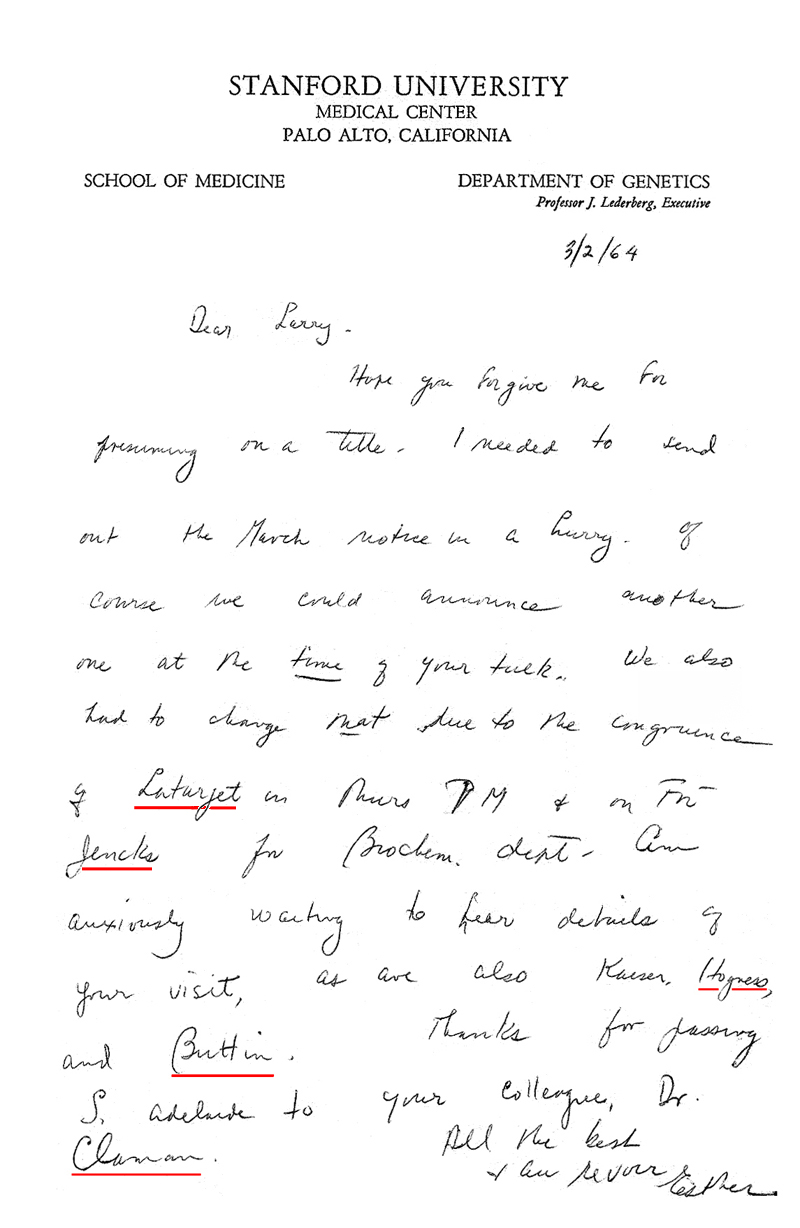 STANFORD UNIVERSITY
MEDICAL CENTER
PALO ALTO, CALIFORNIA
SCHOOL OF MEDICINE DEPARTMENT OF GENETICS
Professor J. Lederberg, Executive
3/2/64
Dear Larry -
Hope you forgive me for
presuming on a title. I needed to send
out the March notice in a hurry. Of
course we could announce another
one at the time of your talk.. We also
had to change that due to the congruence
of Latarjet on Thurs PM & on Fri
Jencks for Biochem. dept - Am
anxiously waiting to hear details of
your visit, as are also Kaiser, Hogness,
and Buttin. Thanks for passing
S. adelaide to your colleague, Dr.
Claman. All the best
& au revoir Esther